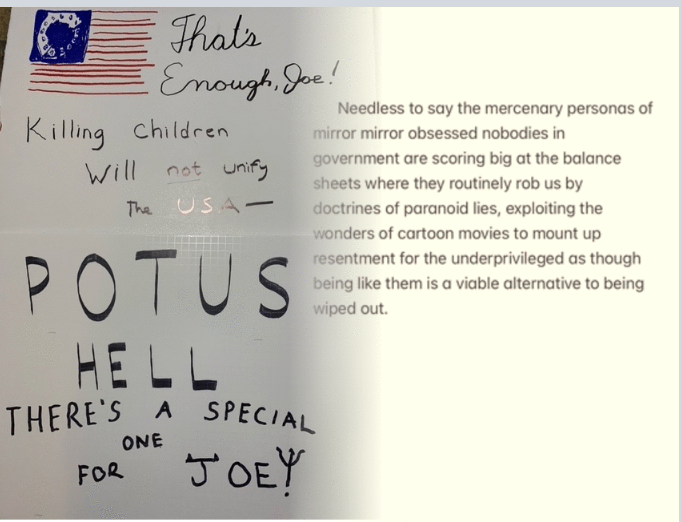 That's
Enough, Joe!
Killing Children
Will not unify
The USA—
POTUS
HELL
THERE'S A SPECIAL
ONE
FOR JOE!
Needless to say the mercenary personas of
mirror mirror obsessed nobodies in
government are scoring big at the balance
sheets where they routinely rob us by
doctrines of paranoid lies, exploiting the
wonders of cartoon movies to mount up
resentment for the underprivileged as though
being like them is a viable alternative to being
wiped out.